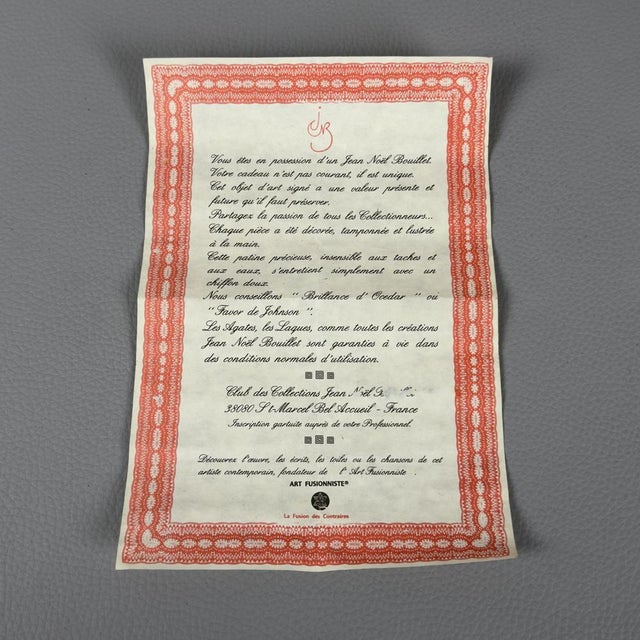 JNB
Vous êtes en possession d'un Jean Noël Bouillet.
Votre cadeau n'est pas courant, il est unique.
Cet objet d'art signé a une valeur présente et
future qu'il faut préserver.
Partagez la passion de tous les Collectionneurs...
Chaque pièce a été décorée, tamponnée et lustrée
à la main.
Cette patine précieuse, insensible aux taches et
aux eaux, s'entretient simplement avec un
chiffon doux.
Nous conseillons " Brillance d'Ocedar " où
" Favor de Johnson ".
Les Agates, les Laques, comme toutes les créations
Jean Noël Bouillet sont garanties à vie dans
des conditions normales d'utilisation.
Club des Collections Jean Noël
38080 St-Marcel Bel Accueil - France
Inscription gartuite auprès de votre Professionnel.
Découvrez l'œuvre, les écrits, les toiles ou les chansons de cet
artiste contemporain, fondateur de l'Art Fusionniste
ART FUSIONNISTE®
La Fusion des Contraires